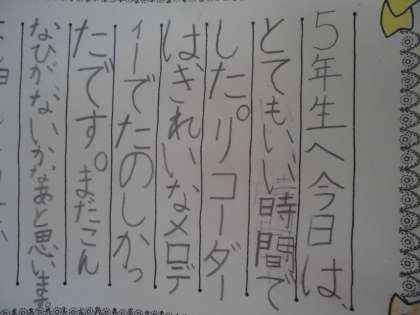 5年生へ今日は、
とてもいい時間で
した。リコーダー
はきれいなメロデ
ィーでたのしかっ
たです。まだこん
なひがないかなあと思います。